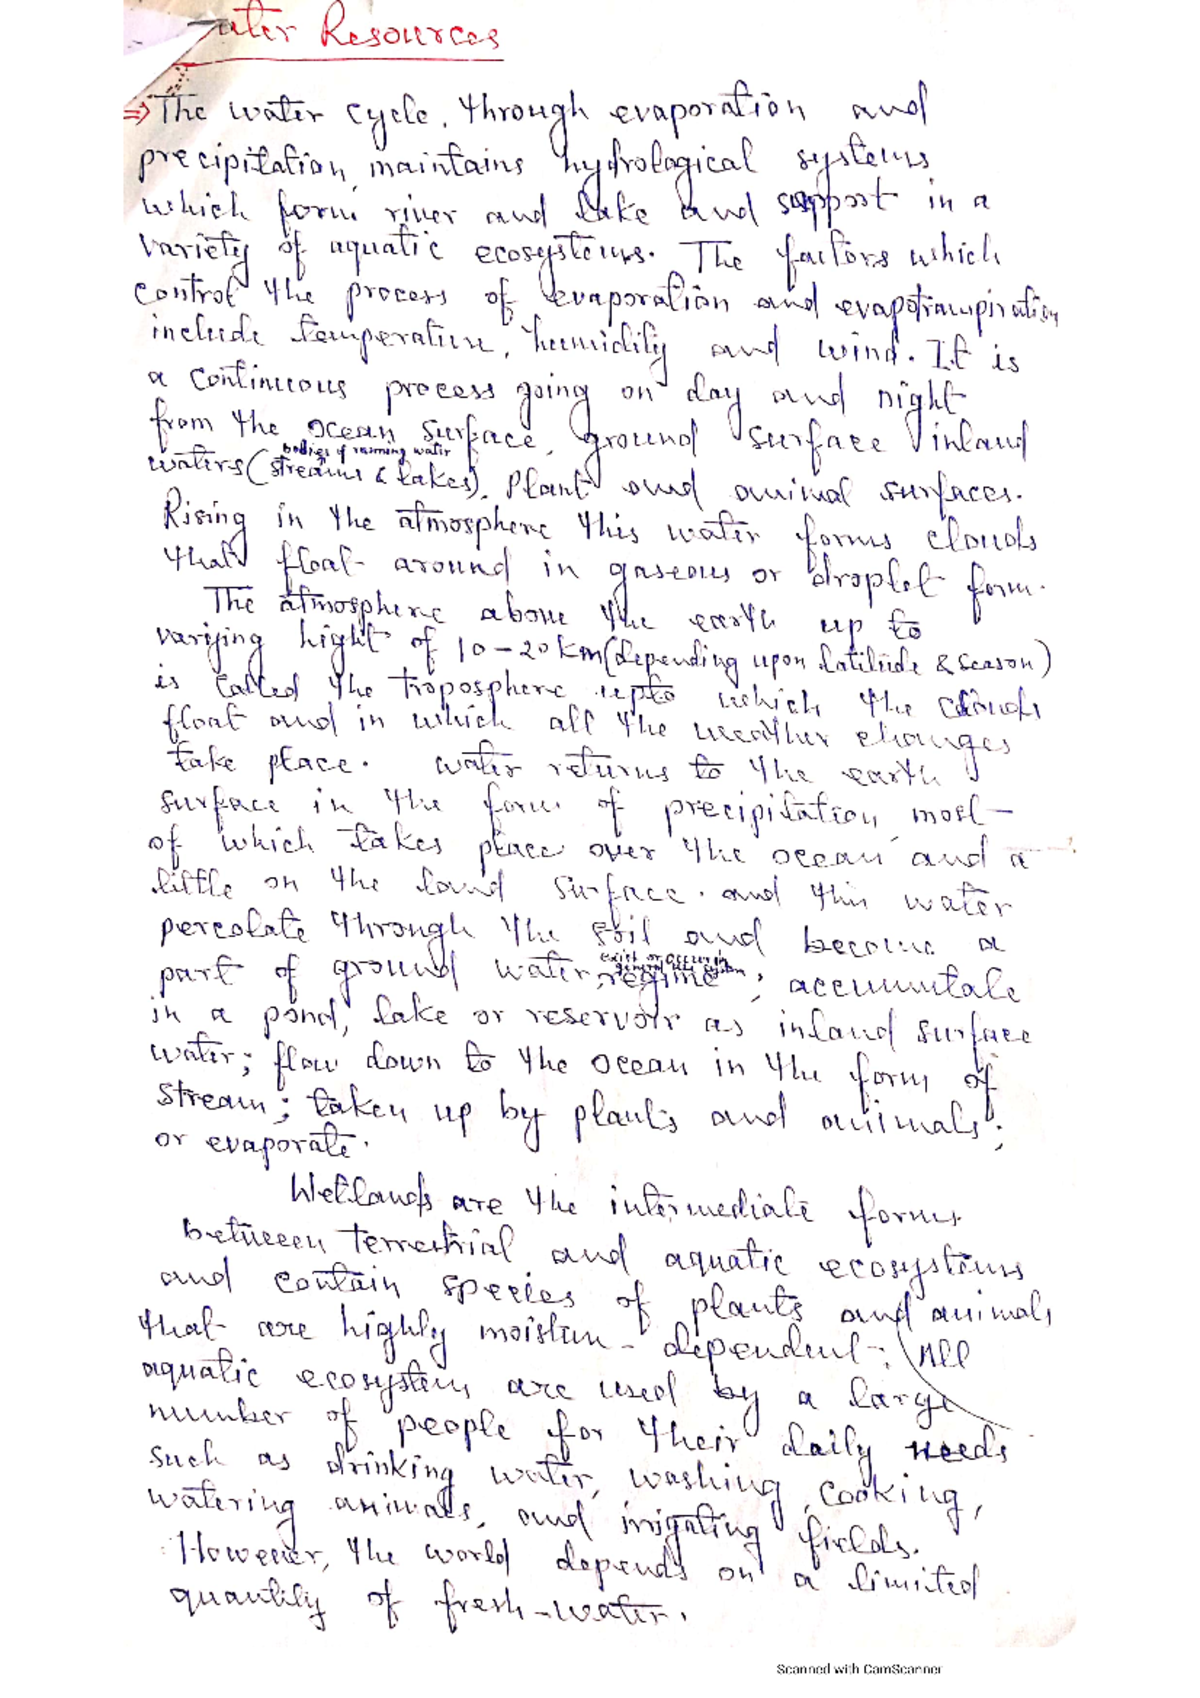 ater Resources
⇒ The water cycle, through evaporation and
precipitation, maintains hydrological systems
which form river and lake and support in a
variety of aquatic ecosystems. The factors which
control the process of evaporation and evapotranspiration
include temperature, humidity and wind. It is
a continuous process going on day and night
from the ocean surface, ground surface inland
bodies of running water
waters (streams & lakes). Plant and animal surfaces.
Rising in the atmosphere this water forms clouds
that float around in gaseous or droplet form.
The atmosphere above the earth up to
varying hight of 10-20 km (depending upon latitude & season)
is called the troposphere upto which the clouds
float and in which all the weather changes
take place. Water returns to the earth
surface in the form of precipitation, most
of which takes place over the ocean and a
little on the land surface. and this water
percolate through the soil and become a
exist or occur in
general
part of ground water regime; accumulate
in a pond, lake or reservoir as inland surface
water; flow down to the ocean in the form of
stream; taken up by plants and animals;
or evaporate.
Wetlands are the intermediate forms
between terrestrial and aquatic ecosystems
and contain species of plants and animals
that are highly moisture-dependent; All
aquatic ecosystem are used by a large
number of people for their daily needs
such as drinking water, washing, cooking,
watering animals, and irrigating fields.
However, the world depends on a limited
quantity of fresh-water.
Scanned with CamScanner